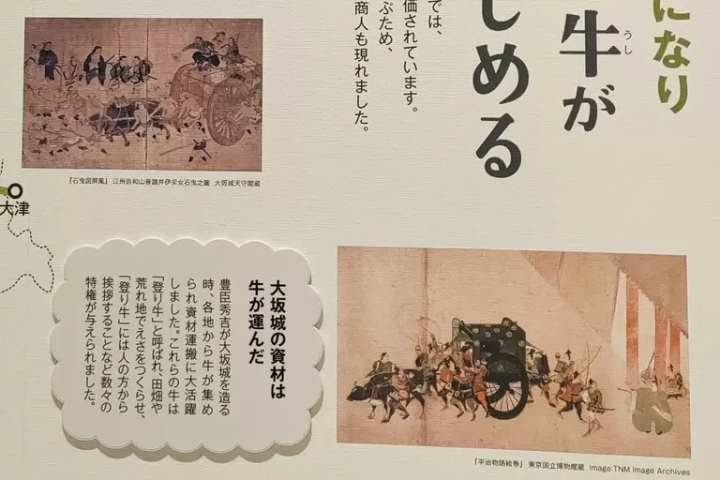 になり
牛が
うし
しめる
では、
価されています。
ぶため、
商人も現れました。
「石曳図屏風」 江州佐和山普請井伊采女石曳之圖 大阪城天守閣蔵
大津
大坂城の資材は
牛が運んだ
豊臣秀吉が大坂城を造る
時、各地から牛が集め
られ資材運搬に大活躍
しました。これらの牛は
「登り牛」と呼ばれ、田畑や
荒れ地でえさをつくらせ、
「登り牛」には人の方から
挨拶することなど数々の
特権が与えられました。
「平治物語絵巻」 東京国立博物館蔵 Image:TNM Image Archives